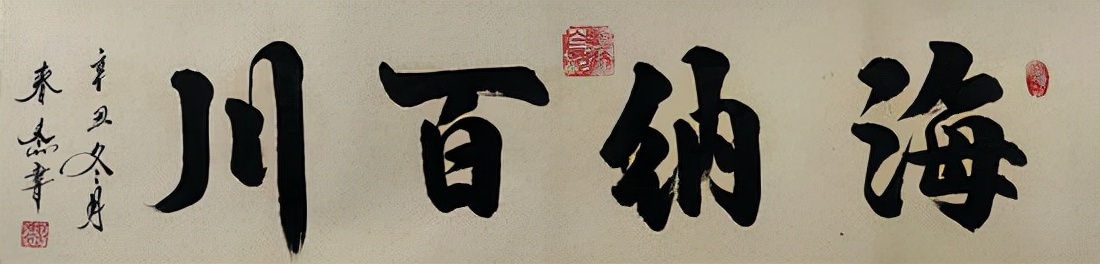 海纳百川
辛丑冬月
春泰書